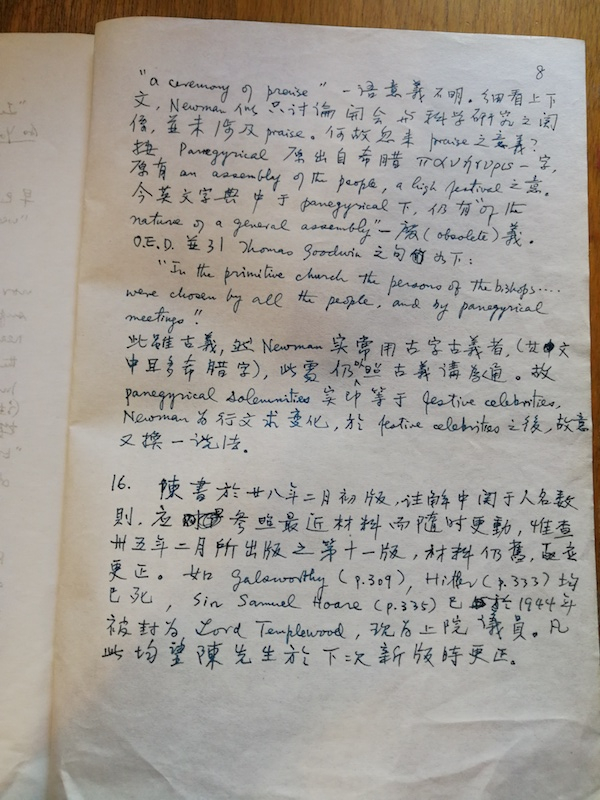 8
"a ceremony of praise" 一语意義不明。细看上下
文，Newman 似只讨論開会与科学研究之関
係，並未涉及praise。何故忽来 praise之意義？
按 Panegyrical 原出自希腊 πανήγυρις 一字，
原有 an assembly of the people, a high festival 之意。
今英文字典中于 panegyrical 下，仍有"of the
nature of a general assembly"一廢(obsolete)義。
O.E.D. 並引 Thomas Goodwin 之句如下：
"In the primitive church the persons of the bishops....
were chosen by all the people, and by panegyrical
meetings".
此雖古義，然 Newman 实常用古字古義者，(其文
中且多希腊字)，此處仍以照古義講為通。故
panegyrical solemnities 实即等于 festive celebrities,
Newman 为行文求变化，於 festive celebrities 之後，故意
又換一说法。
16. 陳書於廿八年二月初版，註解中関于人名数
則，应参照最近材料而随时更動，惟查
卅五年二月所出版之第十一版，材料仍舊，亟宜
更正。如 Galsworthy (p.309), Hitler (p.333) 均
已死，Sir Samuel Hoare (p.335) 已於1944年
被封为 Lord Templewood，现为上院議員。凡
此均望陳先生於下次新版時更正。